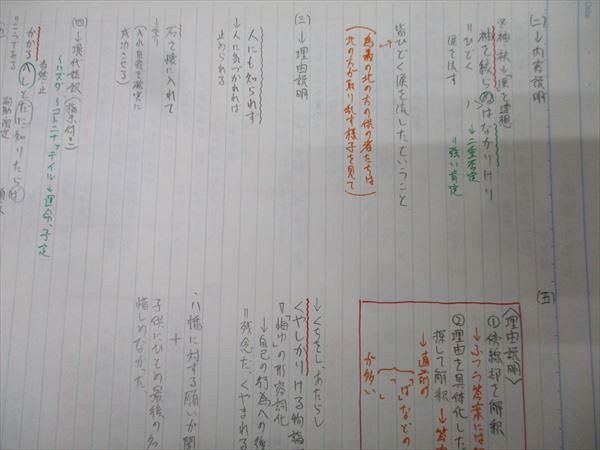 (二)→内容説明
袖を絞らぬはなかりけり
＝ひどく
涙を流す
→二重否定
＝強い肯定
皆ひどく涙を流したということ。
(為義の北の方の供の者たちは
北の方が取り乱す様子を見て)
(三)→理由説明
人にも知られず
→人に気づかれれば
止められる
石を懐に入れて
(入水自殺を確実に
成功させる)
(四)→現代語訳(指示付き)
〜ハズダ 〜コトニナッテイル→運命、予定
かかるべしとだに知りたらば
(五)
〈理由説明〉
①傍線部を解釈
②理由を具体化した
探して解釈
→直前の
「ば」などの
が多い
→くちをし、あたらし
くやしかりける物詣
＝「悔ゆ」の形容詞化
→自己の行為への後
＝残念だ、くやまれる
・八幡に対する願いが聞
＋
子供にひとめ最後の名
惜しめなかった